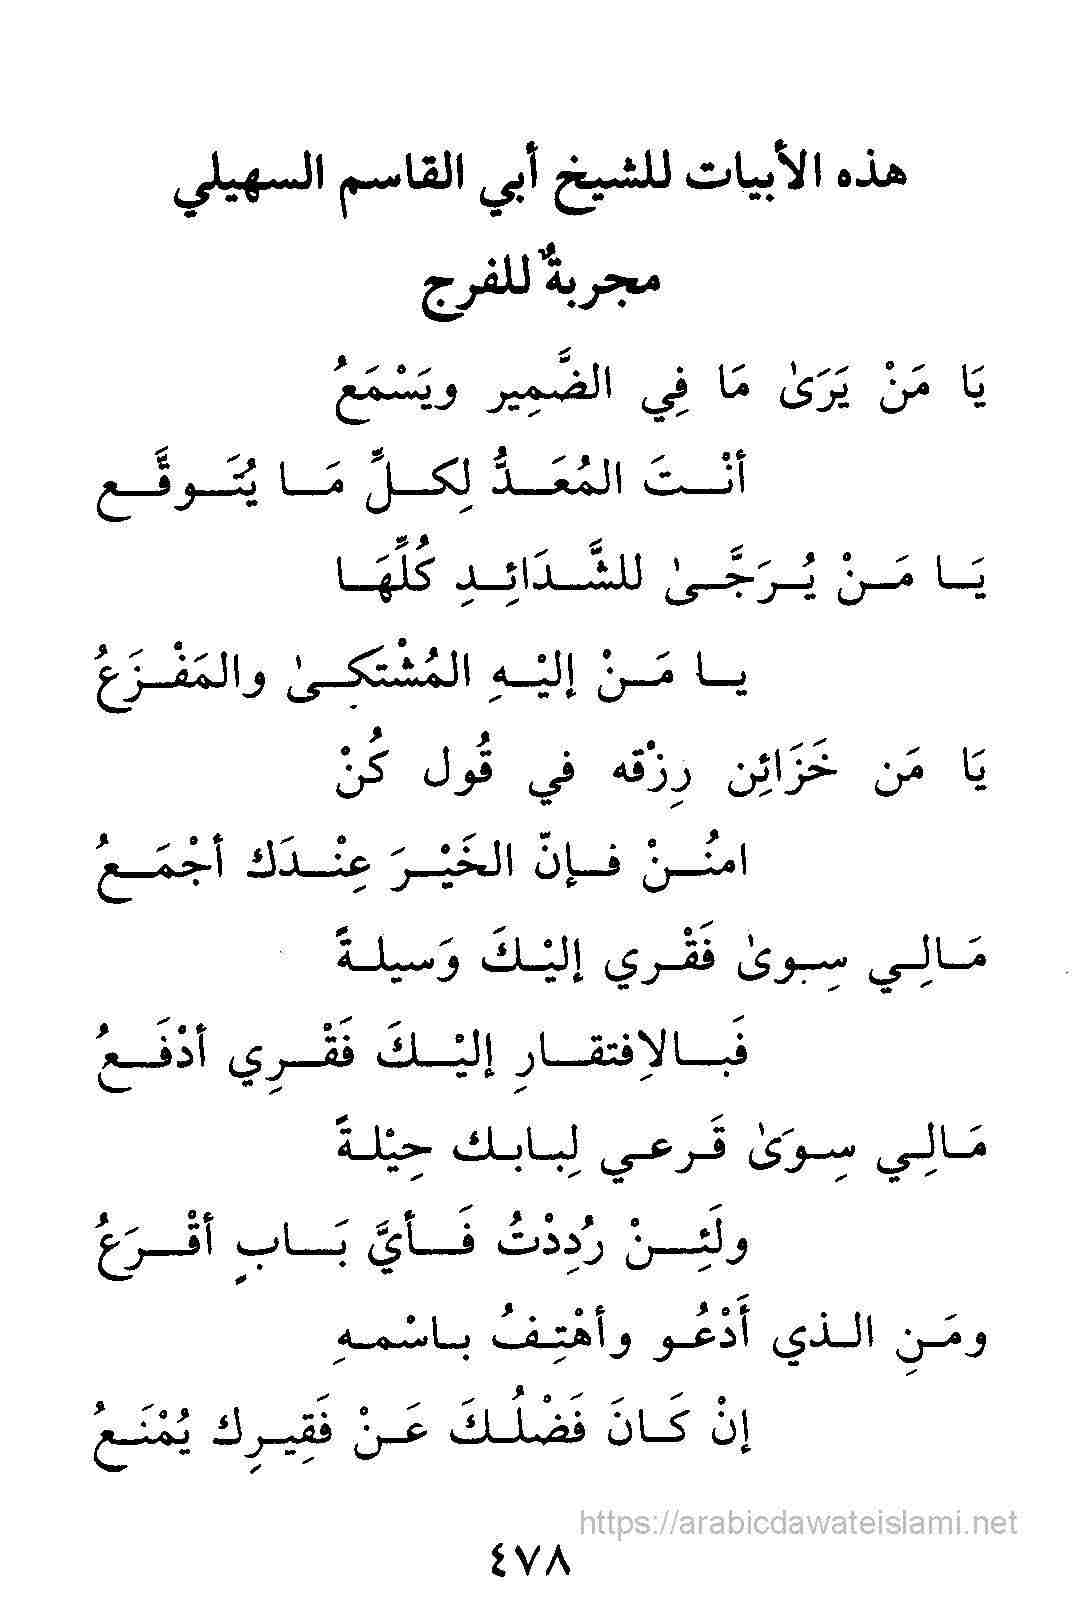 هذه الأبيات للشيخ أبي القاسم السهيلي
مجربةٌ للفرج
يَا مَنْ يَرَىٰ مَا فِي الضَّمِير ويَسْمَعُ
أنْتَ المُعَدُّ لِكلِّ مَا يُتَوقَّع
يَا مَنْ يُرَجَّىٰ للشَّدَائِدِ كُلِّهَا
يا مَنْ إليْهِ المُشْتَكىٰ والمَفْزَعُ
يَا مَن خَزَائِن رِزْقه في قُول كُنْ
امنُنْ فإنّ الخَيْرَ عِنْدَك أجْمَعُ
مَالِي سِوىٰ فَقْري إليْكَ وَسيلةً
فَبالاِفتقارِ إليْكَ فَقْرِي أدْفَعُ
مَالِي سِوَىٰ قَرعي لِبابك حِيْلةً
ولَئِنْ رُدِدْتُ فَأيَّ بَابٍ أقْرَعُ
ومَنِ الذي أَدْعُو وأهْتِفُ باسْمهِ
إنْ كَانَ فَضْلُكَ عَنْ فَقِيرِك يُمْنَعُ
https://arabicdawateislami.net
٤٧٨